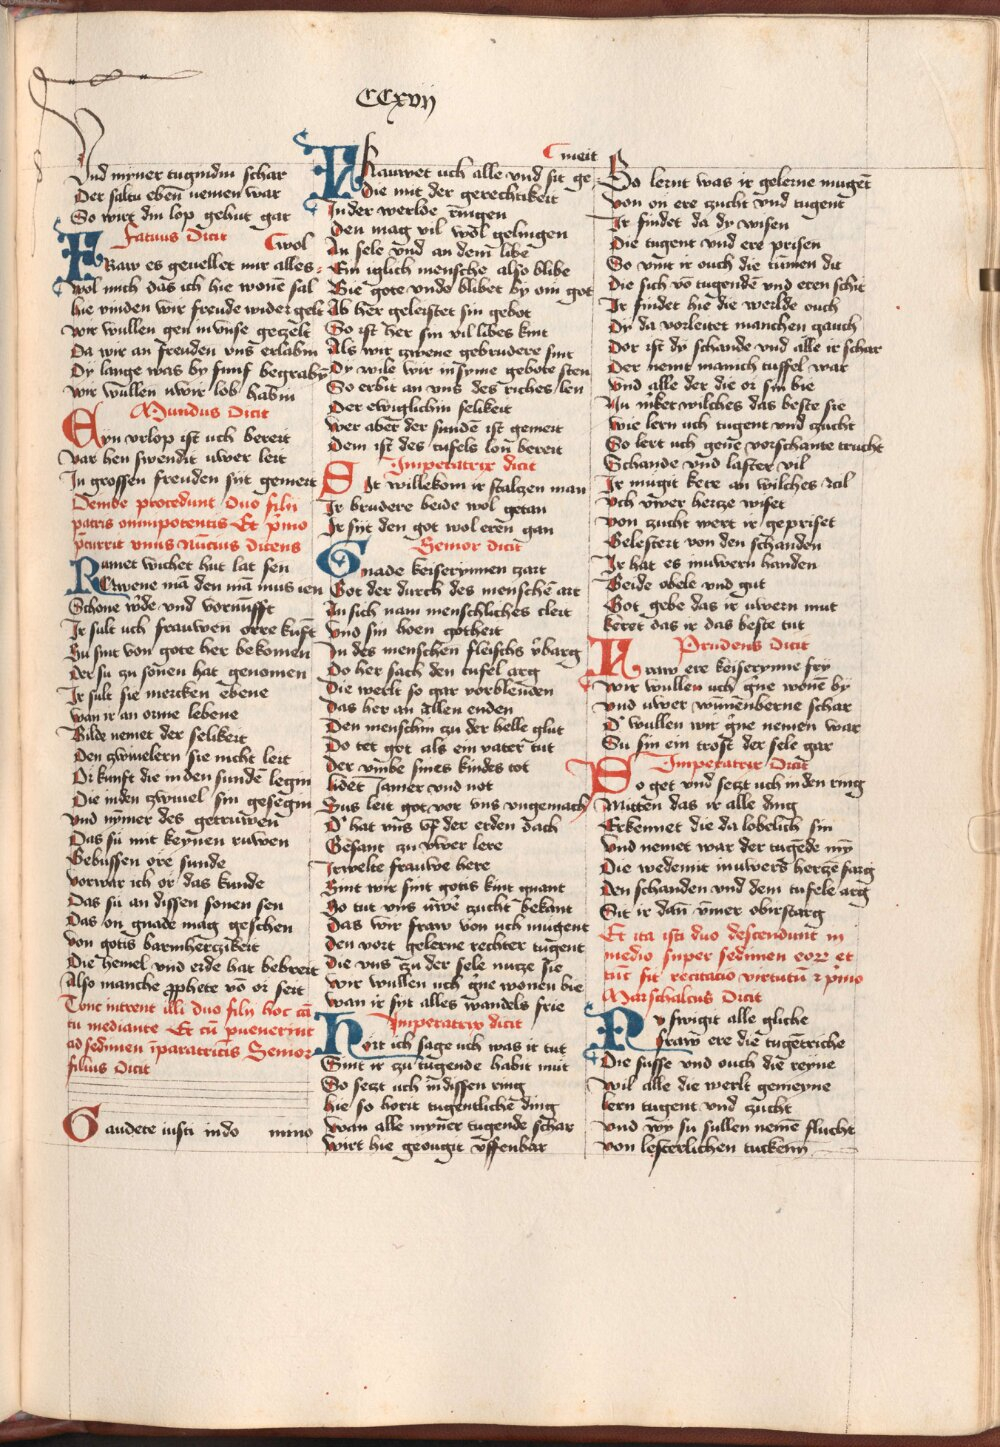 CCxvij
Vnd myner tugindin schar
Der saltu eben nemen war
So wirt din lop gehut gar
Fatuus Dicit
wol
FRaw es geuellet mir alles
wol mich das ich hie wonē sal
hie vinden wir freude wider gelt
wir wullen gen in vnse geczelt
Da wir an freuden vns erlabin
Dy lange was by funf begraby
wir wullen uwir lob habin
Mundus Dicit
Eyn vrlop ist uch bereit
var hen swendit uwer leit
In grossen freuden sint gemeit
Deinde procedunt duo filii
patris omnipotentis Et p̄mo
p̄currit vnus nūcius dicens
Rumet wichet hut lat sen
Czwene mā den mā mus ien
Schone w̄de vnd vornūfft
Ir sult uch frauwen orre kūft
Su sint von gote her bekomen
Der su zu sonen hat genomen
Ir sult sie mercken ebene
wan ir an orme lebene
Bilde nemet der selikeit
Den zwiuelern sie nicht leit
Di kunft die in den sunden legin
Die in den zwiuel sin gesegin
vnd nȳmer des getruwen
Das su mit keynen ruwen
Gebussen ore sunde
vorwar ich or das kunde
Das su an dissen sonen sen
Das on gnade mag geschen
von gotis barmherczikeit
Die hemel vnd erde hat bebreit
Also manche ꝓphete vō or seit
Tunc intrent illi duo filij hoc cā
tu mediante Et cū puenerint
ad sedimen īparatricis Senior
filius dicit
Gaudete iusti in do mino
meit
FRauwet uch alle vnd sit ge
die mit der gerechtikeit
In der werlde rīngen
Den mag vil wol gelingen
An sele vnd an dem libe
Ein iglich mensche also blibe
Bie gote vnde blibet by om got
Ab her geleistet sin gebot
So ist her sin vil libes kint
Als wir zwene gebrudere sint
Dy wile wir in syme gebote sten
So erbit an vns des riches len
Der ewiglichin selikeit
wer aber der sunde ist gemeit
Dem ist des tufels lon bereit
Imperatrix dicit
Sit willekom ir stalczen man
Ir brudere beide wol getan
Ir sint den got wol eren gan
Senior dicit
Gnade keiserynnen zart
Got der durch des menschē art
An sich nam menschliches cleit
vnd sin hoen gotheit
In des menschen fleischs v̄barg
Do her sach den tufel arg
Die werlt so gar vorblenden
Das her an allen enden
Den menschin zu der helle glut
Do tet got als ein vater tut
Der vm̄be sines kindes tot
lidet Jamer vnd not
Sus leit got vor vns vngemach
D' hat vns vf der erden dach
Gesant zu vwer lere
Irwelte frauwe here
Sint wir sint gotis kint gnant
No tut vns uwer zucht bekant
Das wir fraw von uch mugent
den vort gelerne rechter tugent
die vns zu der sele nucze sie
wir wullen uch gne wonen bie
wan ir sijt alles wandels frie
Imperatrix dicit
Hort ich sage uch was ir tut
Sint ir zu tugende habit mut
So seczt uch in dissen ring
hie so horit tugentlichē ding
wan alle myner tugende schar
wirt hie geougit vffenbar
So lernt was ir gelerne mugēt
von on ere zucht vnd tugent
Ir findet da dy wisen
Die tugent vnd ere prisen
So vint ir ouch die tummen dit
Die sich vō tugenden vnd eren schit
Ir findet hie die werlde ouch
Dy da vorleitet manchen gauch
Dor ist dy schande vnd alle ir schar
Der nemt manich tuffel war
vnd alle der die or sin bie
Nu m̄ket wilches das beste sie
wie lern uch tugent vnd zucht
So lert uch gene vorschante trucht
Schande vnd laster vil
Ir mugit kere an wilches zil
uch vwer hertze wiset
von zucht wert ir gepriset
Gelestert von den schanden
Ir hat es in uwern handen
Beide obele vnd gut
Got gebe das ir uwern mut
keret das ir das beste tut
Prudens Dicit
Fraw ere keiserynne fry
wir wullen uch gne wonē by
vnd uwer wunnenberne schar
D' wullen wir gne nemen war
Su sin ein trost der sele gar
Imperatrix Dicit
So get vnd seczt uch in den ring
Mitten das ir alle ding
Erkennet die da lobelich sin
vnd nemet war der tugēde myn
Die wedemit in uwers hercze sarg
Den schanden vnd dem tufele arg
Sit ir dan ȳmer obirstarg
Et ita isti duo descendunt in
medio super sedimen eorum et
tunc sit recitacio virtutū ⁊ p̄mo
Marschalcus Dicit
Nu swigit alle gliche
fraw ere die tugetriche
Die susse vnd ouch die reyne
wil alle die werlt gemeyne
lern tugent vnd zucht
vnd wy su sullen nemē flucht
von lesterlichen tucken